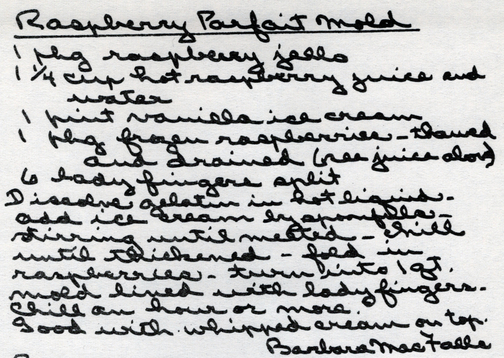 Raspberry Parfait Mold
1 pkg raspberry jello
1 1/4 cup hot raspberry juice and
water
1 pint vanilla ice cream
1 pkg frozen raspberries - thawed
and drained (see juice above)
6 lady fingers split
Dissolve gelatin in hot liquid -
add ice cream by spoonfulls -
stirring until melted - chill
until thickened - fold in
raspberries - turn into 1 qt.
mold lined with ladyfingers.
Chill an hour or more.
Good with whipped cream on top.
Barbara MacFalls